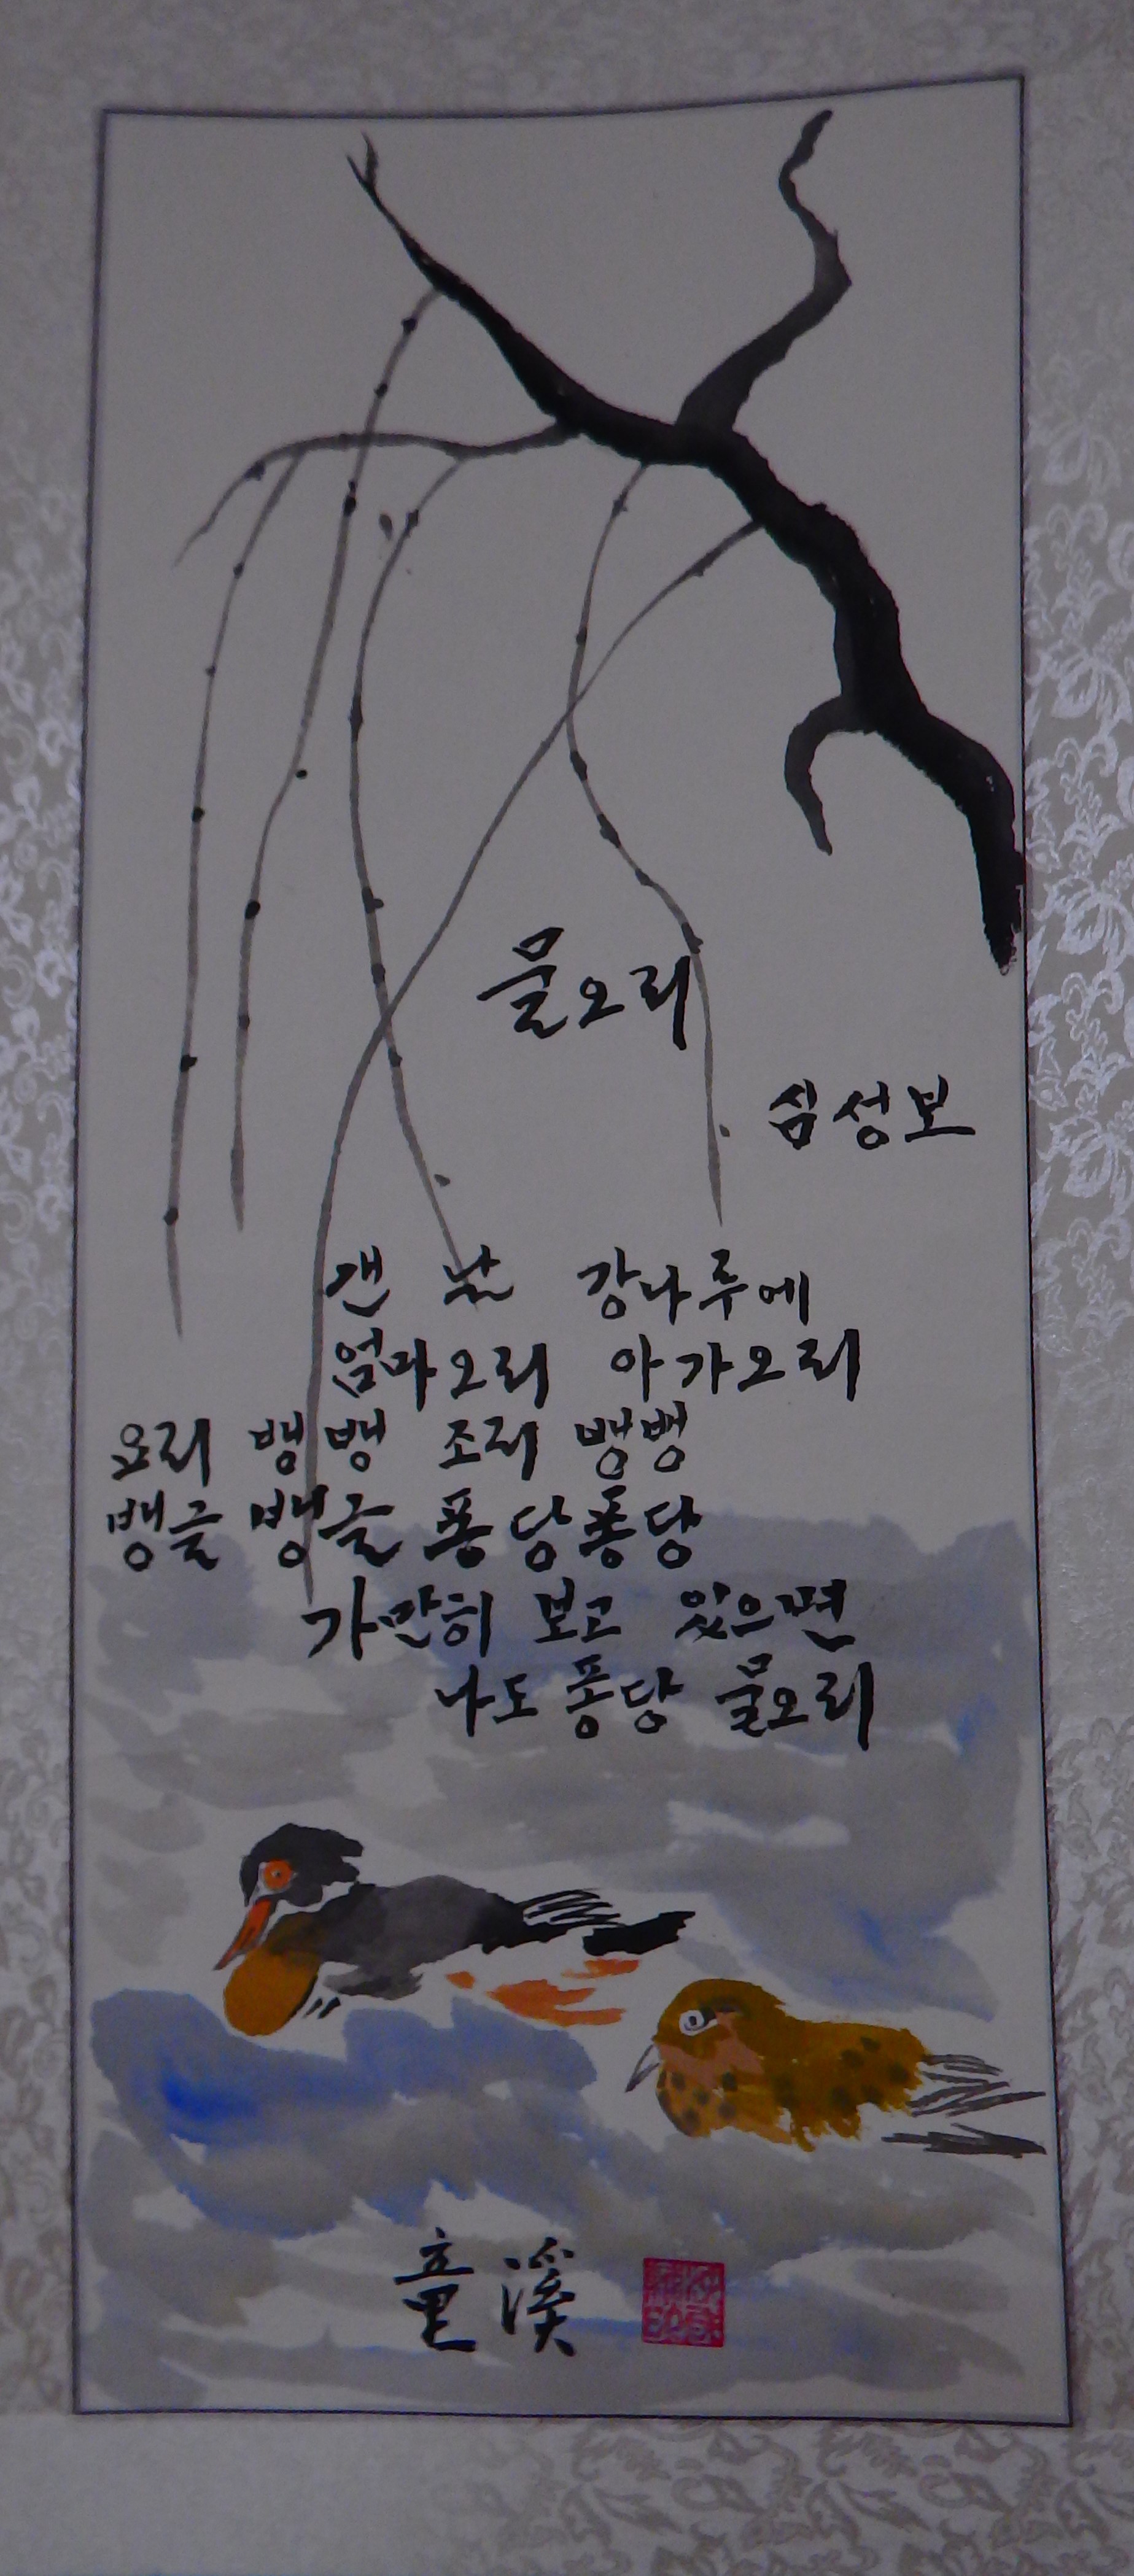 물오리
심성보
갠 날 강나루에
엄마오리 아가오리
요리 뱅뱅 조리 뱅뱅
뱅글 뱅글 퐁당퐁당
가만히 보고 있으면
나도 퐁당 물오리
童溪